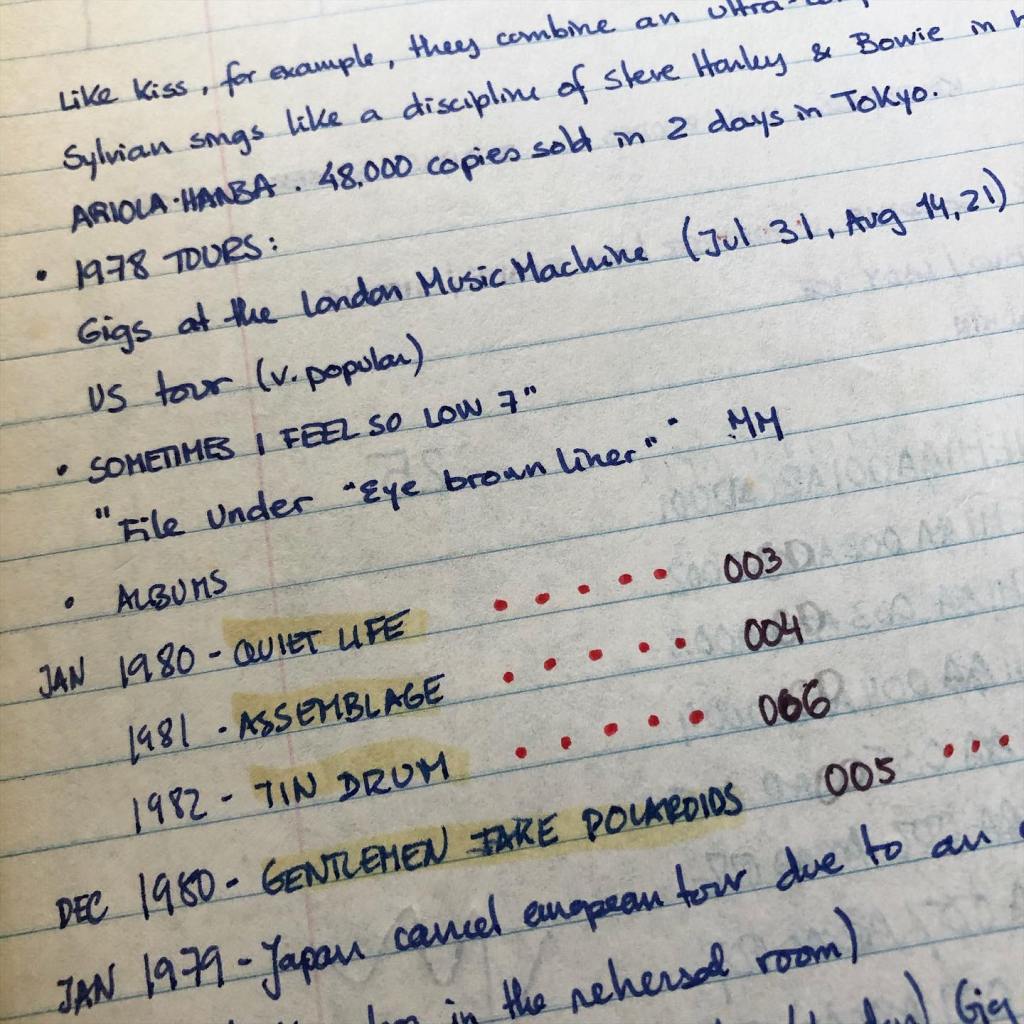 Like Kiss, for example, they combine an ultra-
Sylvian sings like a discipline of Steve Harley & Bowie in
ARIOLA-HANSA. 48.000 copies sold in 2 days in Tokyo.
• 1978 TOURS:
Gigs at the London Music Machine (Jul 31, Aug 14, 21)
US tour (v. popular)
• SOMETIMES I FEEL SO LOW 7"
"File Under "Eye brown liner"" MM
• ALBUMS
JAN 1980 - QUIET LIFE ..... 003
1981 - ASSEMBLAGE ..... 004
1982 - TIN DRUM ..... 006
DEC 1980 - GENTLEMEN TAKE POLAROIDS 005 ...
JAN 1979 - Japan cancel european tour due to an
in the rehersal room)
Gig